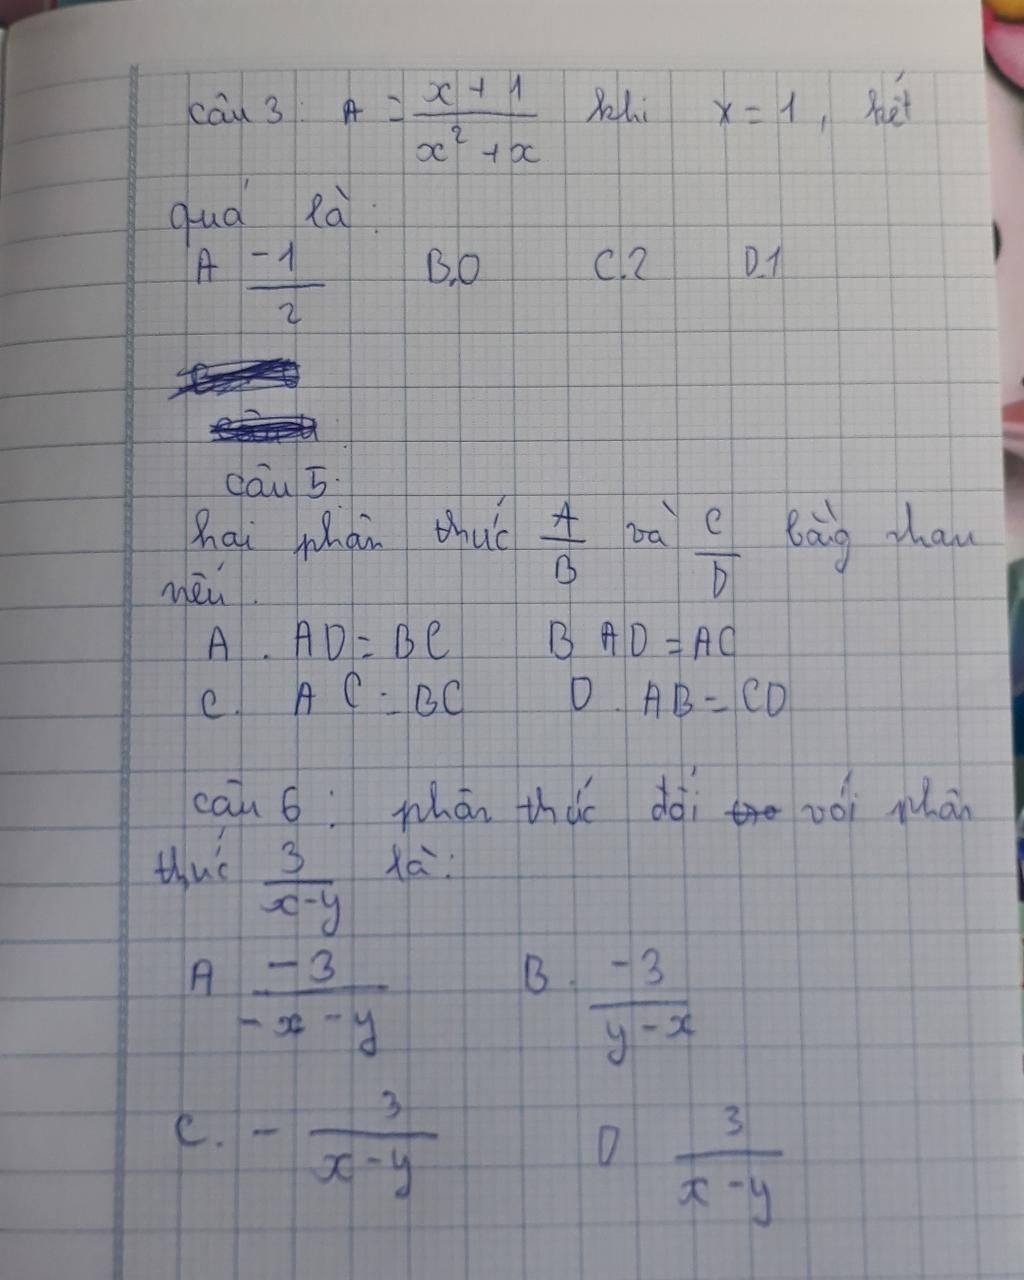 Câu 3: A = \frac{x+1}{x^2+x} khi x = 1, kết
quả là:
A \frac{-1}{2} B.0 C.2 D.1
Câu 5:
hai phân thức \frac{A}{B} và \frac{C}{D} bằg nhau
nếu.
A. AD = BC B AD = AC
C. AC = BC D. AB = CD
Câu 6: phân thức đối với phân
thức \frac{3}{x-y} là:
A \frac{-3}{-x-y} B. \frac{-3}{y-x}
C. -\frac{3}{x-y} D \frac{3}{x-y}